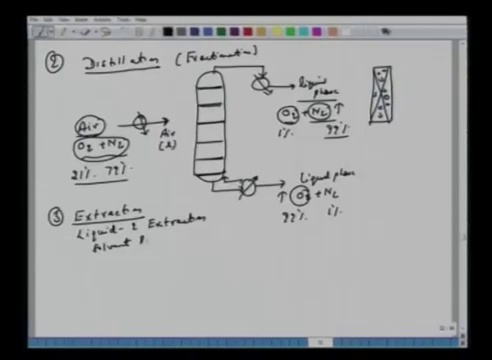 ② Distillation (Fractionation)
Air
O2 + N2
21% 79%
Air
(l)
liquid
phase
O2 + N2 ↑
1% 99%
Liquid phase
↑ O2 + N2
99% 1%
③ Extraction
Liquid - L Extraction
Solvent